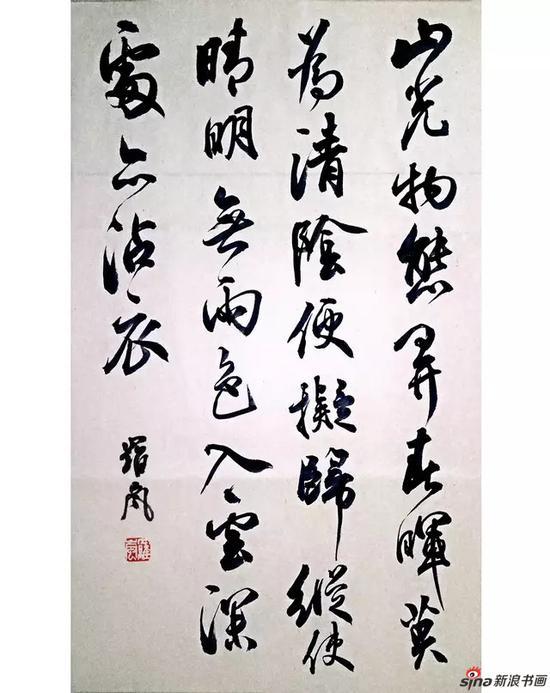 山光物態弄春暉莫
為清陰便擬歸縱使
晴明無雨色入雲深
處亦沾衣
風
sina新浪书画